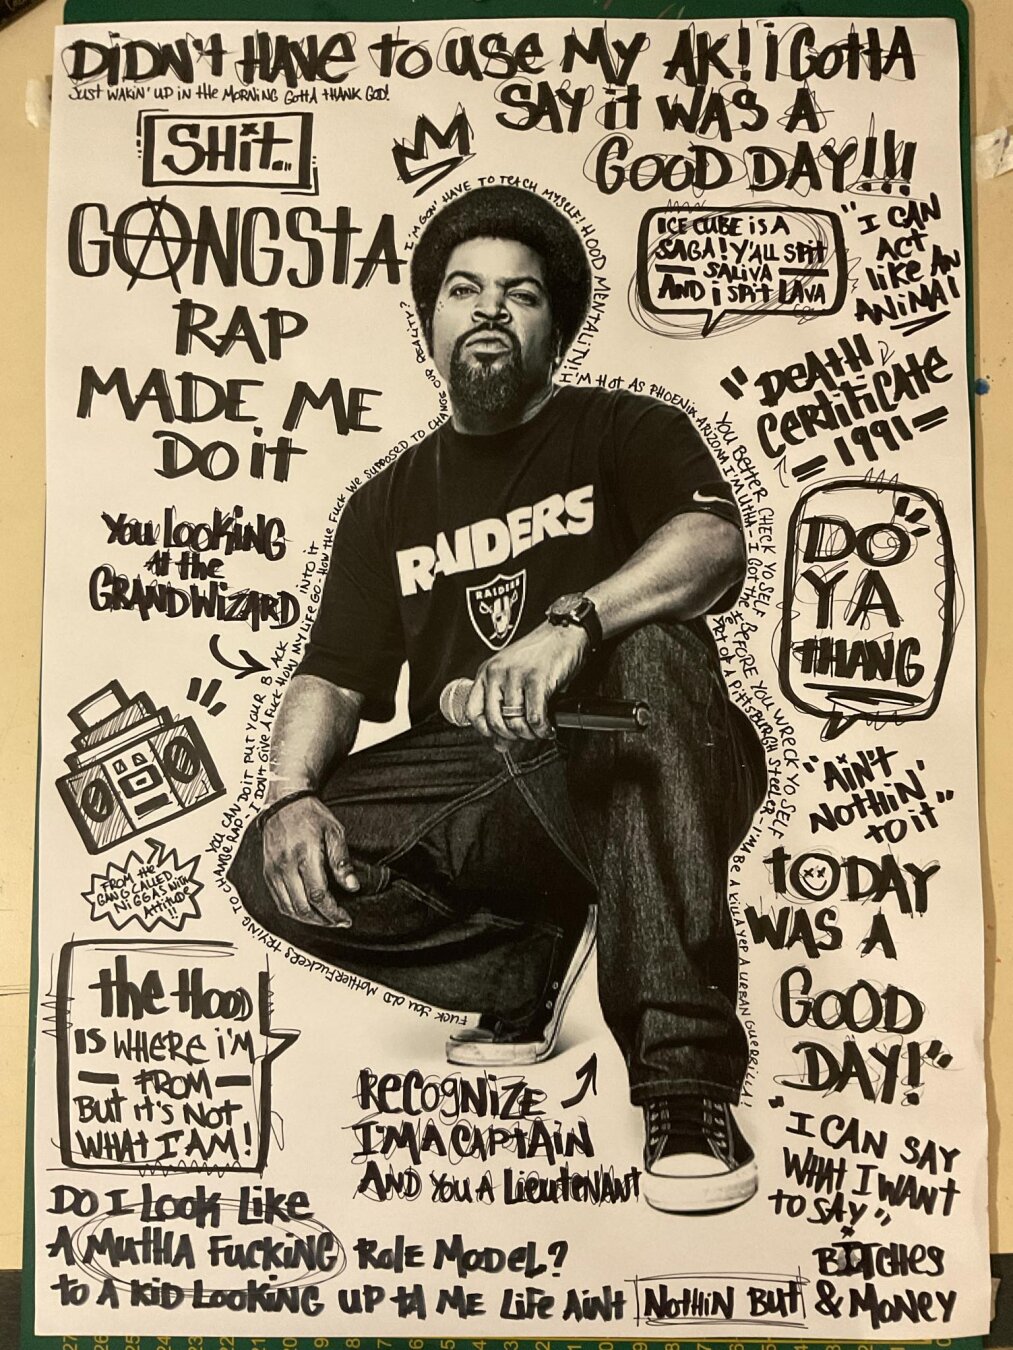 DiDN't HAVE to use MY AK! i GottA
SAY it WAS A
GOOD DAY!!!
JUST WAKIN' UP IN tHE MORNING GOTTA tHANK GOD!
SHit...
GANGStA
RAP
MADE ME
DO it
I'M GON' HAVE TO TEACH MYSELF! HOOD MENTALITY! I'M HOT AS PHOENIX ARIZONA I'M UtHA - I GOt tHE
HOW tHE FUCK WE SUPPOSED TO CHANGE OUR REALITY?
ICE CUBE iS A
SAGA! Y'ALL SPit
— SALiVA —
AND i SPit LAVA
"I CAN
ACT
liKE AN
ANiMAl
"DEAtH
CERtifiCAtE
= 1991 =
YOU BETTER CHECK YO SELF BEFORE YOU WRECK YO SELF
RAIDERS
RAIDERS
You looKiNG
At the
GRAND WiZARD
"DO
YA
tHANG
YOU CAN DO IT PUT YOUR BACK INTO IT
I DON't GIVE A FUCK HOW MY LIFE GO -
FROM thE
GANG CALLED
NiGGAS Wit
AttituDE
!!
"AiN't
NOtHiN'
to it"
tODAY
WAS A
GOOD
DAY!"
I'MA BE A KILLA YEP A URBAN GUERRILLA!
FUCK YOU OLD MOTHERFUCKERS TRYING TO CHANGE RAP -
tHE HOOD
iS WHERE i'M
— FROM —
BUt it'S NOt
WHAt I AM!
RECOGNiZE
I'M A CAPtAiN
AND YOU A LiEUtENANt
"I CAN SAY
WHAT I WANT
TO SAY"
DO I Look Like
A MUtHA FUCKiNG ROlE MODEL?
to A KiD LOOKiNG UP tA ME LiFE AiNt NOtHiN BUt BITCHES
& MONEY